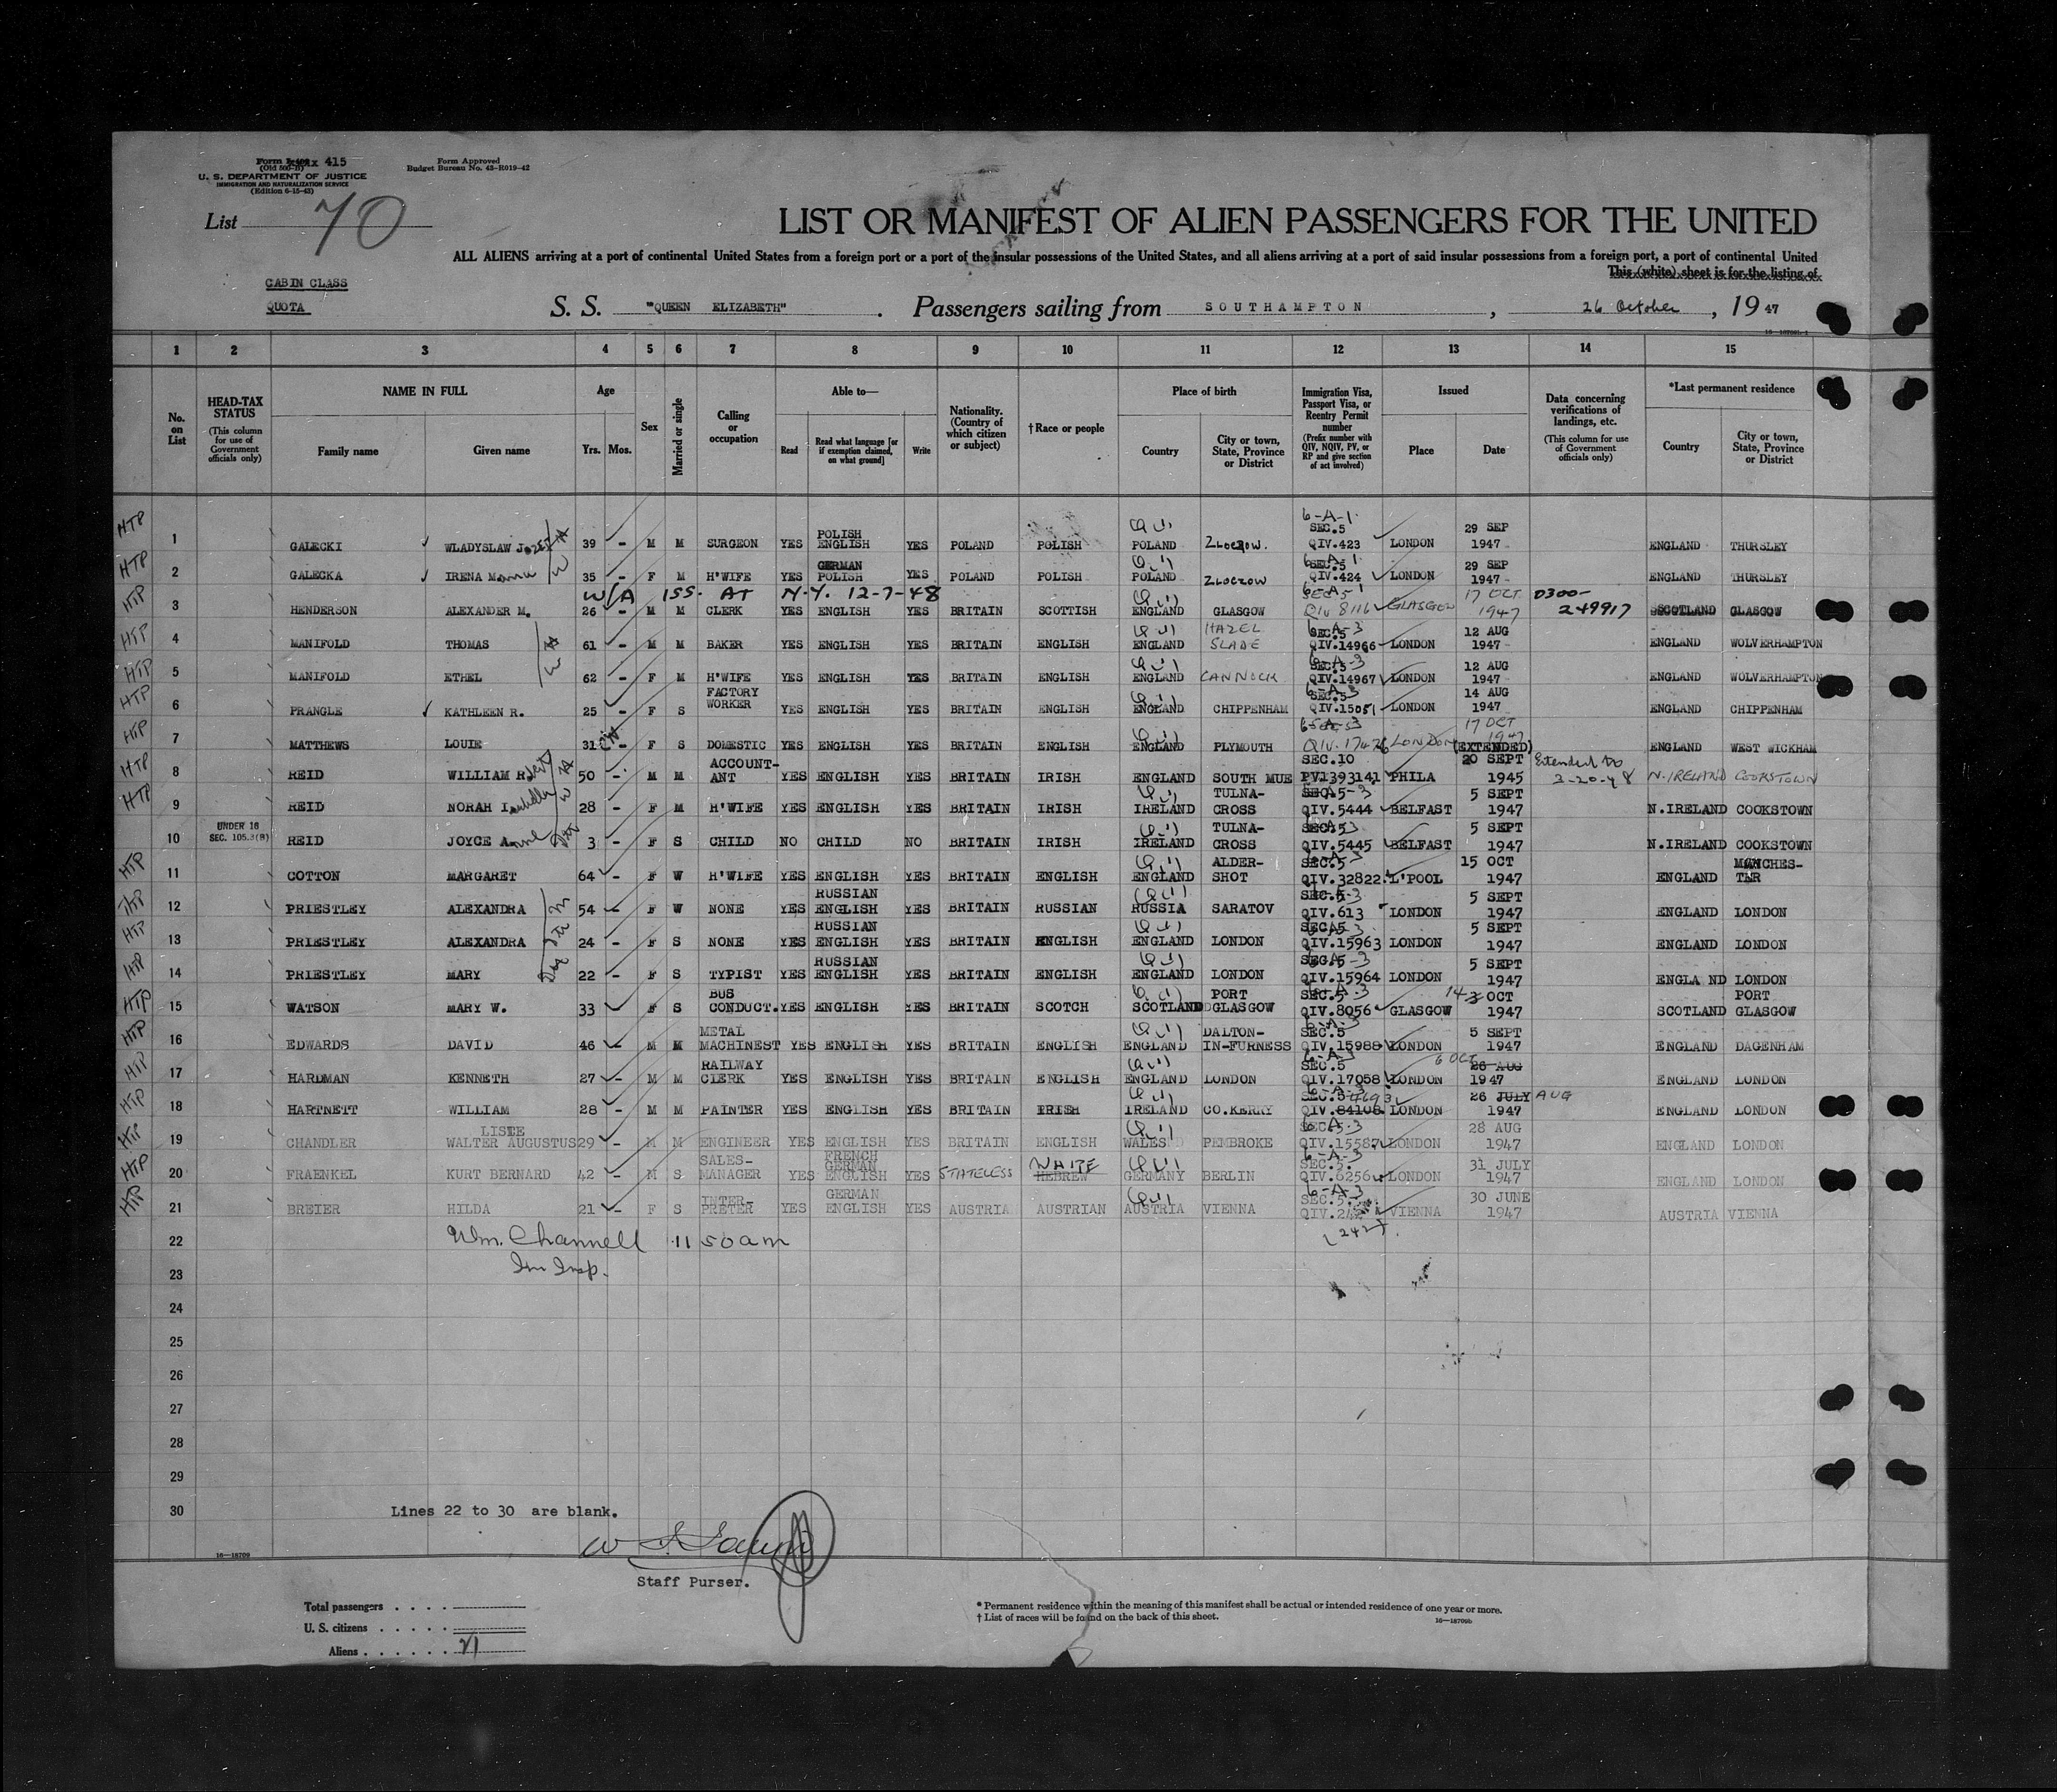 Form 415
(Old 500-B)
U. S. DEPARTMENT OF JUSTICE
IMMIGRATION AND NATURALIZATION SERVICE
(Edition 6-15-43)
Form Approved
Budget Bureau No. 43-R019-42
List 70
LIST OR MANIFEST OF ALIEN PASSENGERS FOR THE UNITED
ALL ALIENS arriving at a port of continental United States from a foreign port or a port of the insular possessions of the United States, and all aliens arriving at a port of said insular possessions from a foreign port, a port of continental United
This (white) sheet is for the listing of
CABIN CLASS
QUOTA
S. S. "QUEEN ELIZABETH". Passengers sailing from SOUTHAMPTON, 26 October, 1947
1 2 3 4 5 6 7 8 9 10 11 12 13 14 15
No. on List
HEAD-TAX STATUS (This column for use of Government officials only)
NAME IN FULL Family name Given name
Age Yrs. Mos.
Sex
Married or single
Calling or occupation
Able to— Read Read what language [or if exemption claimed, on what ground] Write
Nationality. (Country of which citizen or subject)
†Race or people
Place of birth Country City or town, State, Province or District
Immigration Visa, Passport Visa, or Reentry Permit number (Prefix number with QIV, NQIV, PV, or RP and give section of act involved)
Issued Place Date
Data concerning verifications of landings, etc. (This column for use of Government officials only)
*Last permanent residence Country City or town, State, Province or District
HTP 1 GALECKI WLADYSLAW Jozef 39 - M M SURGEON YES POLISH ENGLISH YES POLAND POLISH POLAND Zloczow. 6-A-1 SEC.5 QIV.423 LONDON 29 SEP 1947 ENGLAND THURSLEY
HTP 2 GALECKA IRENA Maria 35 - F M H'WIFE YES GERMAN POLISH YES POLAND POLISH POLAND Zloczow 6-A-1 SEC.5 QIV.424 LONDON 29 SEP 1947 ENGLAND THURSLEY
W/A ISS. AT N.Y. 12-7-48
HTP 3 HENDERSON ALEXANDER M. 26 - M M CLERK YES ENGLISH YES BRITAIN SCOTTISH ENGLAND GLASGOW SEC 5 QIV 8116 GLASGOW 17 OCT 1947 0300-249917 SCOTLAND GLASGOW
HTP 4 MANIFOLD THOMAS 61 - M M BAKER YES ENGLISH YES BRITAIN ENGLISH ENGLAND HAZEL SLADE 6-A-3 SEC.5 QIV.14966 LONDON 12 AUG 1947 ENGLAND WOLVERHAMPTON
HTP 5 MANIFOLD ETHEL 62 - F M H'WIFE YES ENGLISH YES BRITAIN ENGLISH ENGLAND CANNOCK 6-A-3 SEC.5 QIV.14967 LONDON 12 AUG 1947 ENGLAND WOLVERHAMPTON
HTP 6 PRANGLE KATHLEEN R. 25 - F S FACTORY WORKER YES ENGLISH YES BRITAIN ENGLISH ENGLAND CHIPPENHAM 6-A-3 SEC.5 QIV.15051 LONDON 14 AUG 1947 ENGLAND CHIPPENHAM
HTP 7 MATTHEWS LOUIE 31 - F S DOMESTIC YES ENGLISH YES BRITAIN ENGLISH ENGLAND PLYMOUTH 6-A-3 QIV.17476 LONDON 17 OCT 1947 ENGLAND WEST WICKHAM
HTP 8 REID WILLIAM Robert 50 - M M ACCOUNT-ANT YES ENGLISH YES BRITAIN IRISH ENGLAND SOUTH MUE SEC.10 PV1393141 PHILA (EXTENDED) 20 SEPT 1945 Extended to 3-20-48 N. IRELAND COOKSTOWN
HTP 9 REID NORAH Isabella 28 - F M H'WIFE YES ENGLISH YES BRITAIN IRISH IRELAND TULNA-CROSS 6-A-3 SEC.5 QIV.5444 BELFAST 5 SEPT 1947 N.IRELAND COOKSTOWN
UNDER 16 SEC. 105.3(B) 10 REID JOYCE Anne 3 - F S CHILD NO CHILD NO BRITAIN IRISH IRELAND TULNA-CROSS SEC.5 QIV.5445 BELFAST 5 SEPT 1947 N.IRELAND COOKSTOWN
HTP 11 COTTON MARGARET 64 - F W H'WIFE YES ENGLISH YES BRITAIN ENGLISH ENGLAND ALDER-SHOT SEC.5 QIV.32822 L'POOL 15 OCT 1947 ENGLAND MANCHES-TER
HTP 12 PRIESTLEY ALEXANDRA 54 - F W NONE YES RUSSIAN ENGLISH YES BRITAIN RUSSIAN RUSSIA SARATOV SEC.5 QIV.613 LONDON 5 SEPT 1947 ENGLAND LONDON
HTP 13 PRIESTLEY ALEXANDRA 24 - F S NONE YES RUSSIAN ENGLISH YES BRITAIN ENGLISH ENGLAND LONDON SEC.5 QIV.15963 LONDON 5 SEPT 1947 ENGLAND LONDON
HTP 14 PRIESTLEY MARY 22 - F S TYPIST YES RUSSIAN ENGLISH YES BRITAIN ENGLISH ENGLAND LONDON SEC.5 QIV.15964 LONDON 5 SEPT 1947 ENGLA ND LONDON
HTP 15 WATSON MARY W. 33 F S BUS CONDUCT. YES ENGLISH YES BRITAIN SCOTCH SCOTLAND PORT GLASGOW SEC.5 QIV.8056 GLASGOW 14 OCT 1947 SCOTLAND PORT GLASGOW
HTP 16 EDWARDS DAVID 46 - M M METAL MACHINEST YES ENGLISH YES BRITAIN ENGLISH ENGLAND DALTON-IN-FURNESS 6-A-3 SEC.5 QIV.15988 LONDON 5 SEPT 1947 ENGLAND DAGENHAM
HTP 17 HARDMAN KENNETH 27 - M M RAILWAY CLERK YES ENGLISH YES BRITAIN ENGLISH ENGLAND LONDON 6-A-3 SEC.5 QIV.17058 LONDON 6 OCT 26 AUG 1947 ENGLAND LONDON
HTP 18 HARTNETT WILLIAM 28 - M M PAINTER YES ENGLISH YES BRITAIN IRISH IRELAND CO.KERRY 6-A-3 SEC.5 QIV.84108 LONDON 26 JULY AUG 1947 ENGLAND LONDON
HTP 19 CHANDLER LISLE WALTER AUGUSTUS 29 - M M ENGINEER YES ENGLISH YES BRITAIN ENGLISH WALES PEMBROKE SEC.5 QIV.15587 LONDON 28 AUG 1947 ENGLAND LONDON
HTP 20 FRAENKEL KURT BERNARD 42 - M S SALES-MANAGER YES FRENCH GERMAN ENGLISH YES STATELESS HEBREW WHITE GERMANY BERLIN 6-A-3 SEC.5. QIV.6256 LONDON 31 JULY 1947 ENGLAND LONDON
HTP 21 BREIER HILDA 21 - F S INTER-PRETER YES GERMAN ENGLISH YES AUSTRIA AUSTRIAN AUSTRIA VIENNA 6-A-3 SEC.5. QIV. 2427 VIENNA 30 JUNE 1947 AUSTRIA VIENNA
22 Wm. Channell 11 50 am
23 Im Insp.
24
25
26
27
28
29
30 Lines 22 to 30 are blank.
16—18709
Staff Purser.
Total passengers
U. S. citizens
Aliens 21
* Permanent residence within the meaning of this manifest shall be actual or intended residence of one year or more.
† List of races will be found on the back of this sheet.
16—18709b